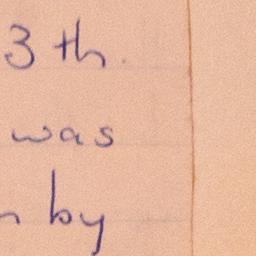 3 th.
was
by